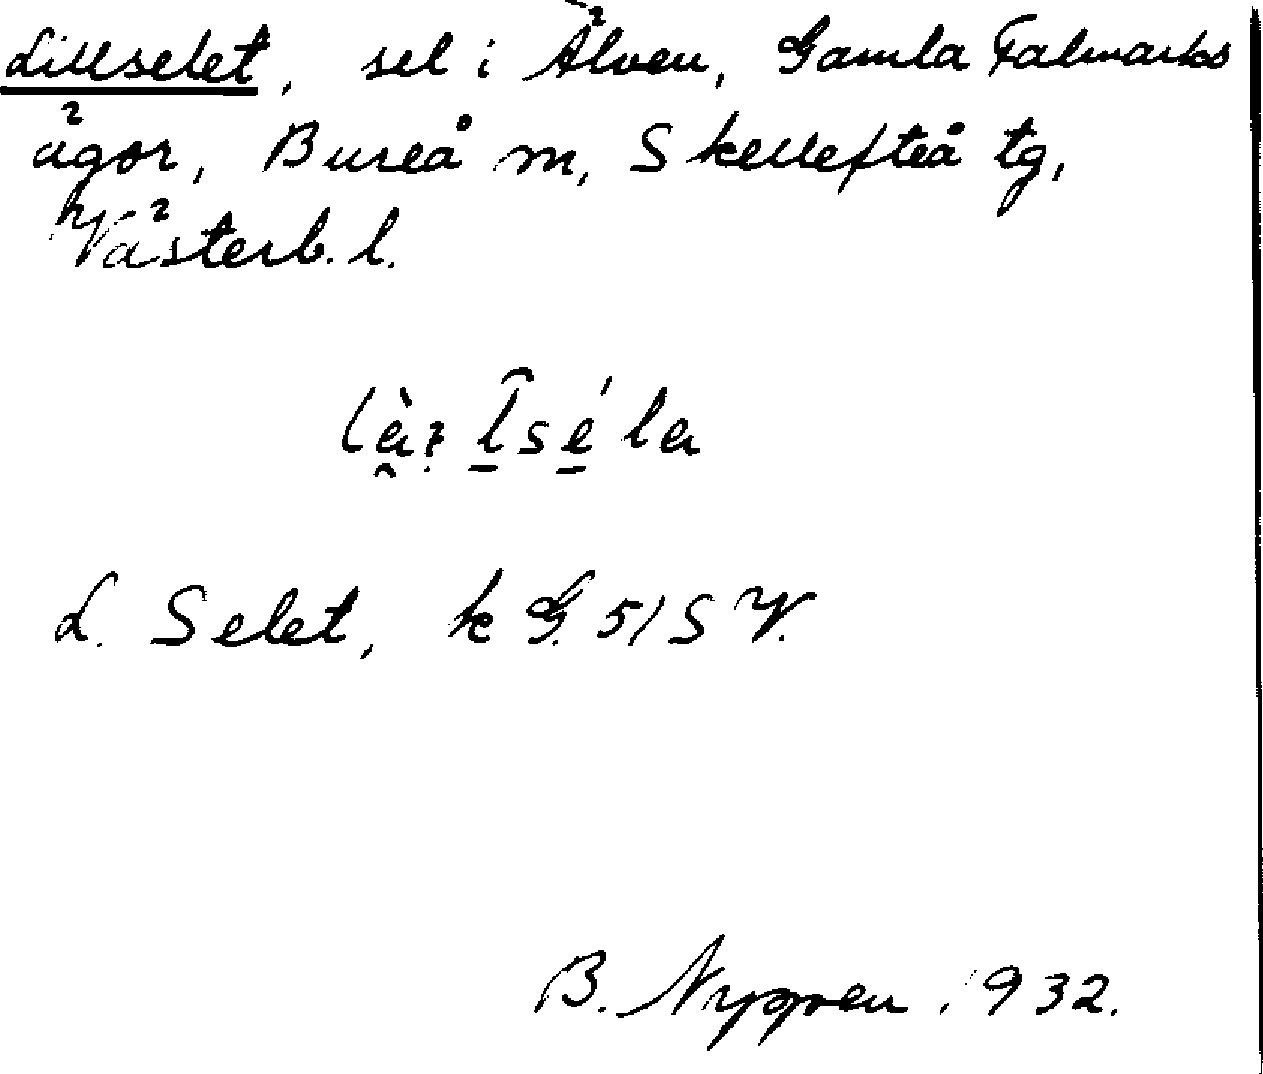 Lillselet, sel i Älven, Gamla Falmarks
ägor, Bureå m, Skellefteå tg,
Västerb. l.
L. Selet, k G. 51 S V.
B. Nygren 1932.